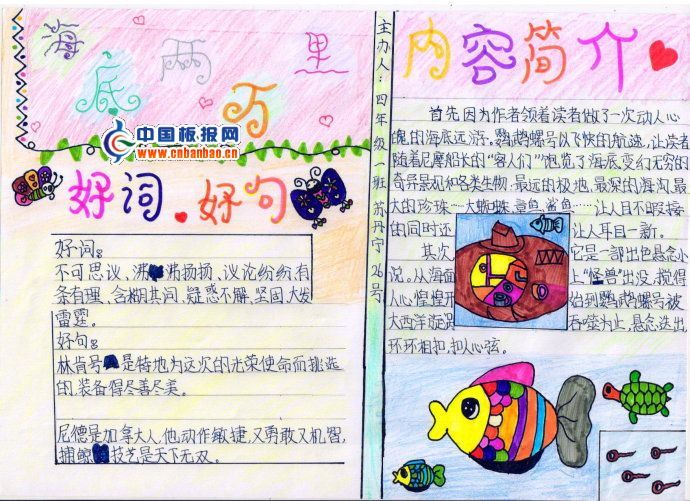 海底两万里
中国板报网
www.cnbanbao.cn
好词 好句
好词:
不可思议、沸沸扬扬、议论纷纷、有
条有理、含糊其词、疑惑不解、坚固、大发
雷霆。
好句:
林肯号是特地为这次的光荣使命而挑选
的,装备得尽善尽美。
尼德是加拿大人,他动作敏捷,又勇敢又机智,
捕鲸技艺是天下无双。
主办人:四年级一班 苏丹宁26号
内容简介
首先因为作者领着读者做了一次动人心
魄的海底远游:鹦鹉螺号以飞快的航速,让读者
随着尼摩船长的“客人们”饱览了海底变幻无穷的
奇异景观和各类生物:最远的极地,最深的海沟,最
大的珍珠……大蜘蛛、章鱼、鲨鱼……让人目不暇接
的同时还 让人耳目一新。
其次 它是一部出色悬念小
说。从海面 上“怪兽”出没,搅得
人心惶惶开 始到鹦鹉螺号被
大西洋旋涡 吞噬为止,悬念迭出,
环环相扣,扣人心弦。